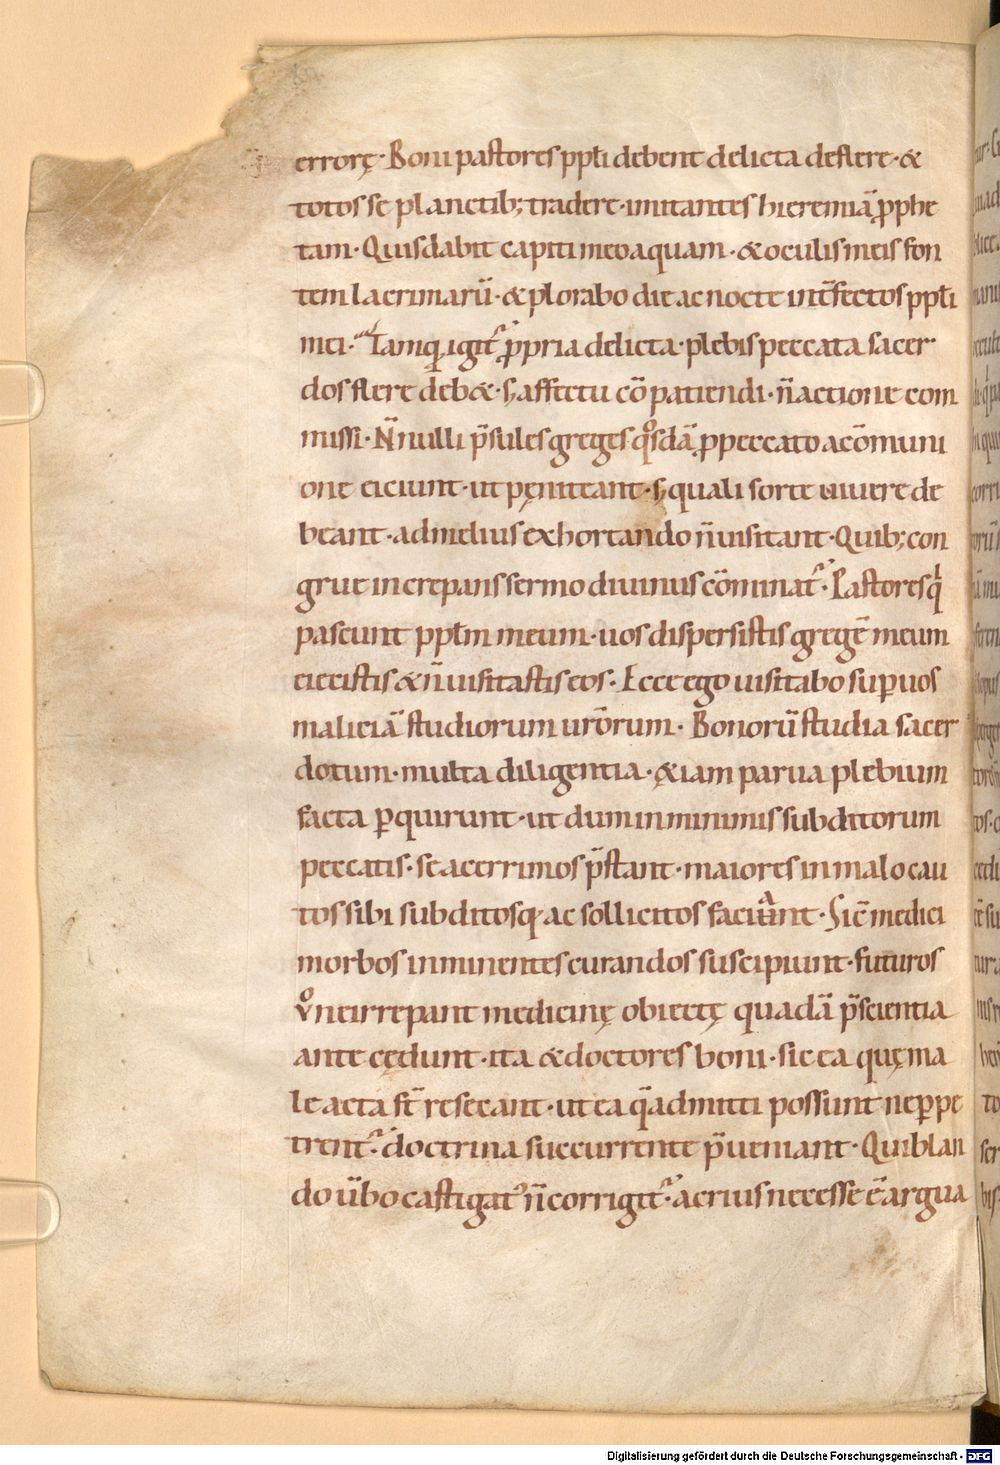 errorę· Boni pastores ppl̄i debent delicta deflere· &
totos se planctib; tradere· imitantes hieremiā ꝓphe
tam· Quis dabit capiti meo aquam· & oculis meis fon
tem lacrimarū· & plorabo die ac nocte int̄fectos ppl̄i
mei· Tamquā igit᷑ ꝓpria delicta· plebis peccata sacer
dos flere deb&· s; affectu cōpatiendi· n̄ actione com
missi· N̄nulli p̄sules greges qͦsdā ꝓ peccato a cōmuni
one eiciunt· ut pęniteant· s; quali sorte uiuere de
beant· ad melius exhortando n̄ uisitant· Quib; con
grue increpans sermo diuinus cōminat᷑· Pastores qͥ
pascunt ppl̄m meum· uos dispersistis gregē meum
eiecistis & n̄ uisitastis eos· Ecce ego uisitabo suꝑ uos
maliciā studiorum ur̄orum· Bonorū studia sacer
dotum· multa diligentia· &iam parua plebium
facta ꝑquirunt· ut dum in minimis subditorum
peccatis· se acerrimos p̄stant· maiores in malo cau
tos sibi subditosq· ac sollicitos faciant· Sic ē medici
morbos inminentes curandos suscipiunt· futuros
vͦ ne irrepant medicinę obiectę quadā p̄scientia
antecędunt· ita & doctores boni· sic ea quę ma
le acta st̄ resecant· ut ea q̄ admitti possunt ne ꝑpe
trent᷑· doctrina succurrente p̄ueniant· Qui blan
do ūbo castigat᷒ n̄ corrigit᷑· acrius necesse ē argua
Digitalisierung gefördert durch die Deutsche Forschungsgemeinschaft - DFG